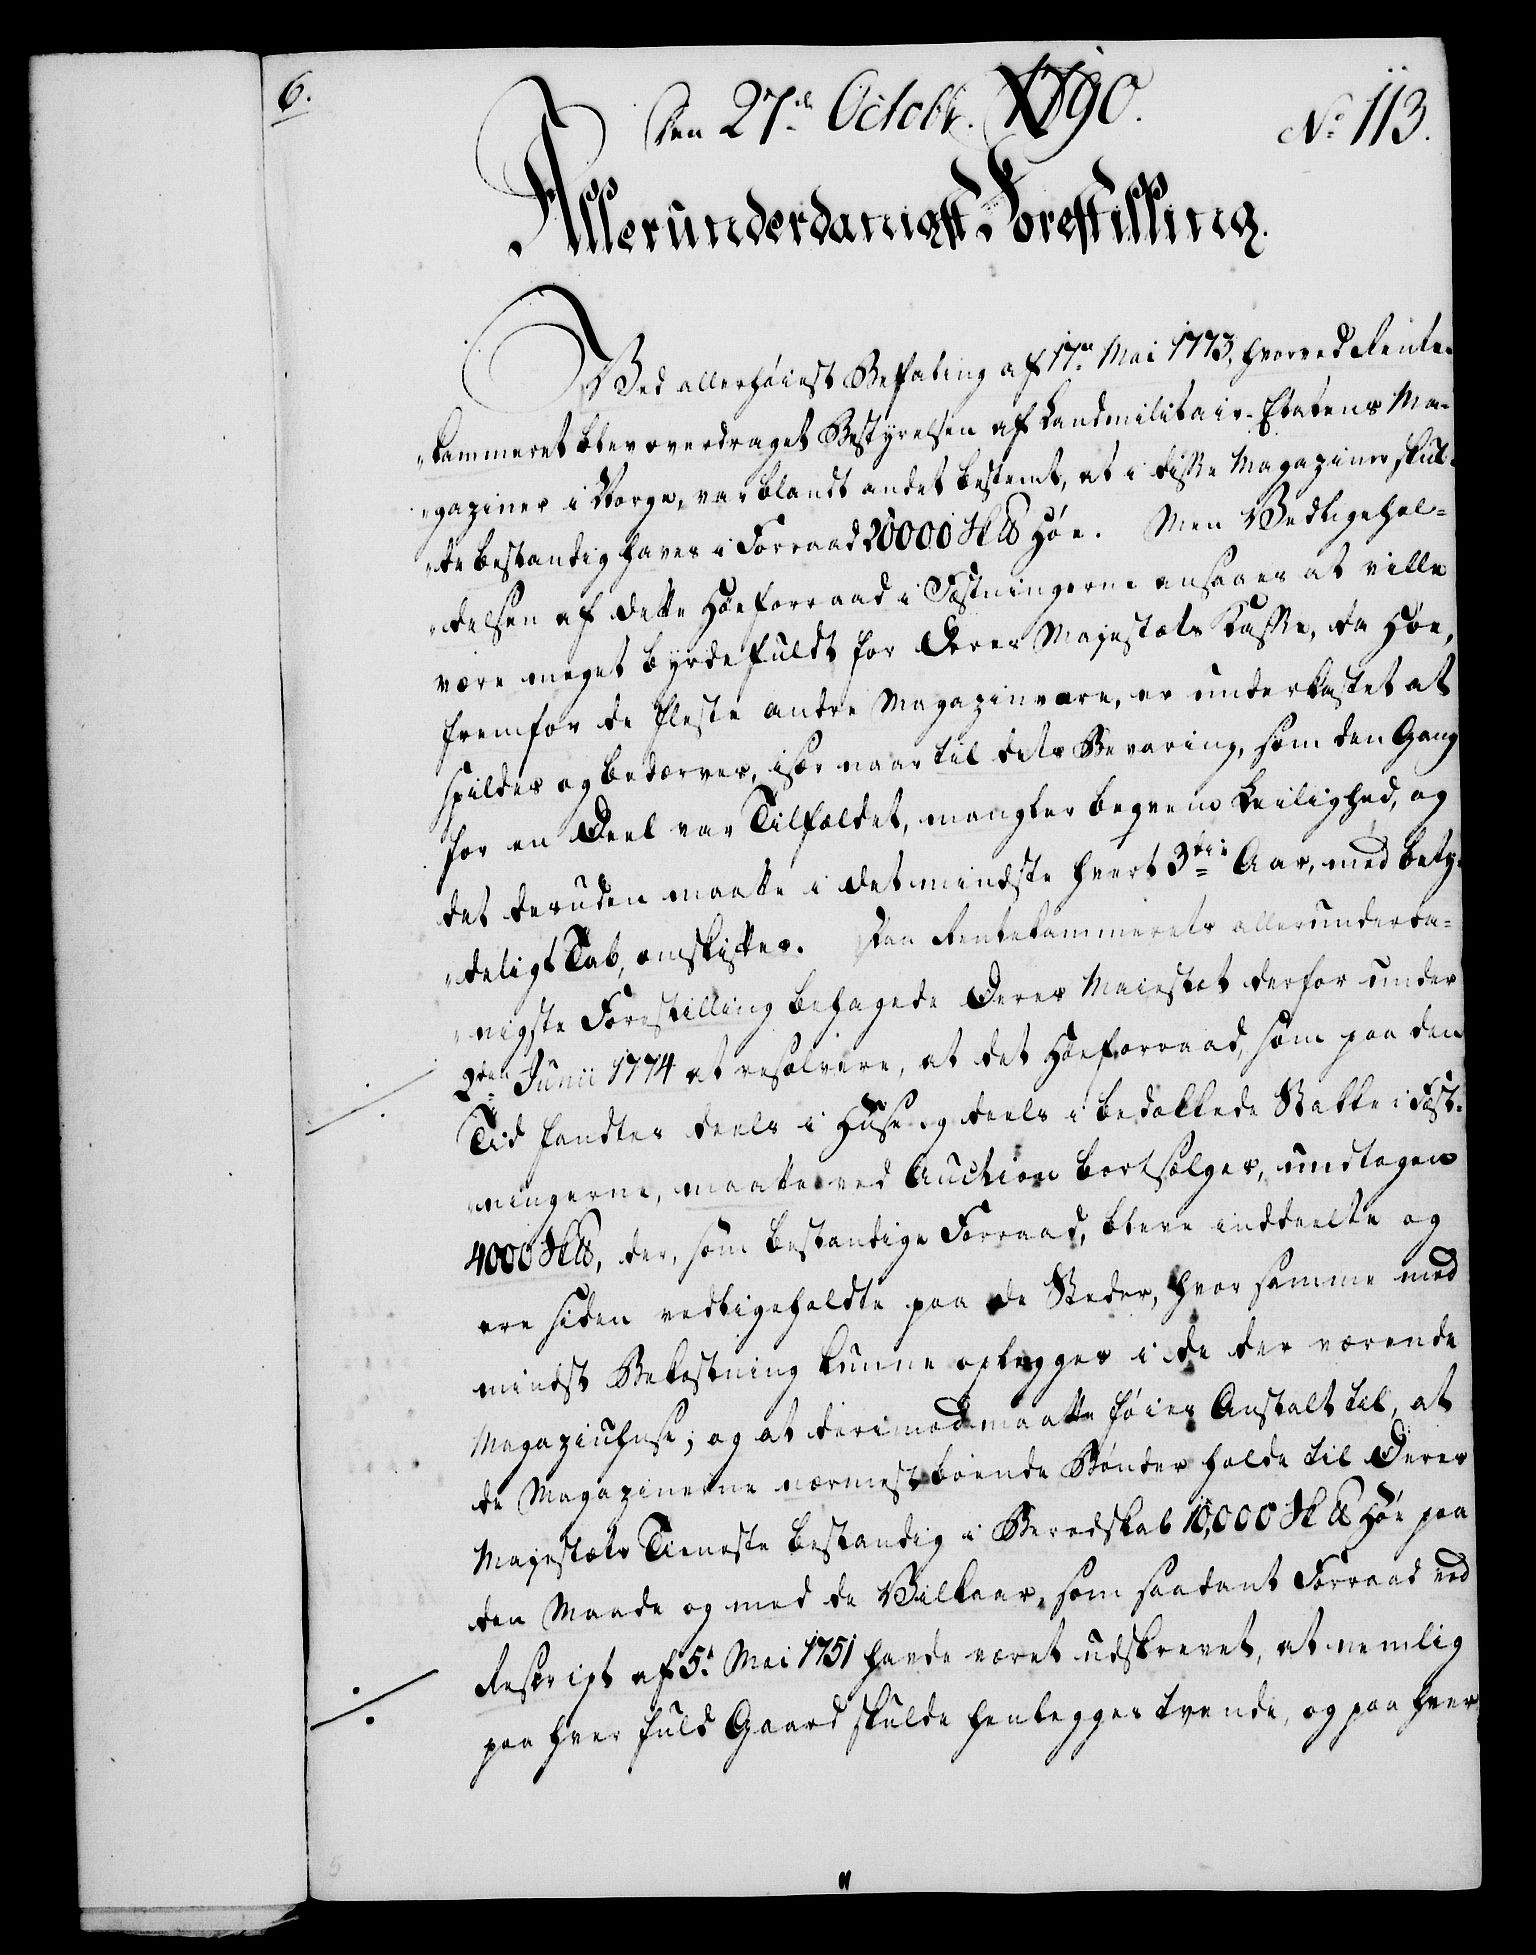 6.
Den 27de Octobr. 1790.
No 113.
Allerunderdanigst Forestilling.
Ved allerhöiest Befaling af 17de Mai 1773, hvorved Rente-
"kammeret blev overdraget Bestyrelsen af Landmilitair-Etatens Ma-
"gaziner i Norge, var blandt andet bestemt, at i disse Magaziner skul-
"de bestandig haves i Forraad 20000 Sk℔ Höe. Men Vedligehol-
"delsen af dette Höeforraad i Fæstningerne ansaaes at ville
være meget byrdefuldt for Deres Majestæts Kasse, da Höe,
fremfor de fleste andre Magazinvare, er underkastet at
spildes og bedærves, især naar til dets Bevaring, som den Gang
for en Deel var Tilfældet, mangler beqvem Leilighed, og
det desuden maatte i det mindste hvert 3die Aar, med bety-
"deligt Tab, omskiftes. Paa Rentekammerets allerunderda-
"nigste Forestilling behagede Deres Maiestæt derfor under
2den Junii 1774 at resolvere, at det Höeforraad, som paa den
Tid fandtes deels i Huse og deels i bedækkede Stakke i Fæst-
"ningerne, maatte ved Auction bortsælges, undtagen
4000 Sk℔, der, som bestandige Forraad, bleve inddeelte og
ere siden vedligeholdte paa de Steder, hvor samme med
mindst Bekostning kunne oplegges i de der værende
Magazinhuse; og at derimod maatte föies Anstalt til, at
de Magazinerne nærmest boende Bönder holde til Deres
Majestæts Tieneste bestandig i Beredskab 10,000 Sk℔ Höe paa
den Maade og med de Vilkaar, som saadant Forraad ved
Reskript af 5te Mai 1751 havde været udskrevet, at nemlig
paa hver fuld Gaard skulde henlegges tvende, og paa hver